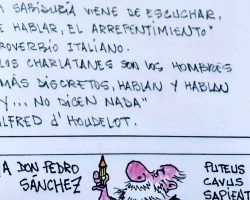 A SABIDURÍA VIENE DE ESCUCHAR,
E HABLAR, EL ARREPENTIMIENTO"
ROVERBIO ITALIANO.
LOS CHARLATANES SON LOS HOMBRES
MÁS DISCRETOS, HABLAN Y HABLAN
Y... NO DICEN NADA"
LFRED d' HOUDELOT.
A DON PEDRO
SÁNCHEZ
PUTEUS
CAVUS
SAPIENT